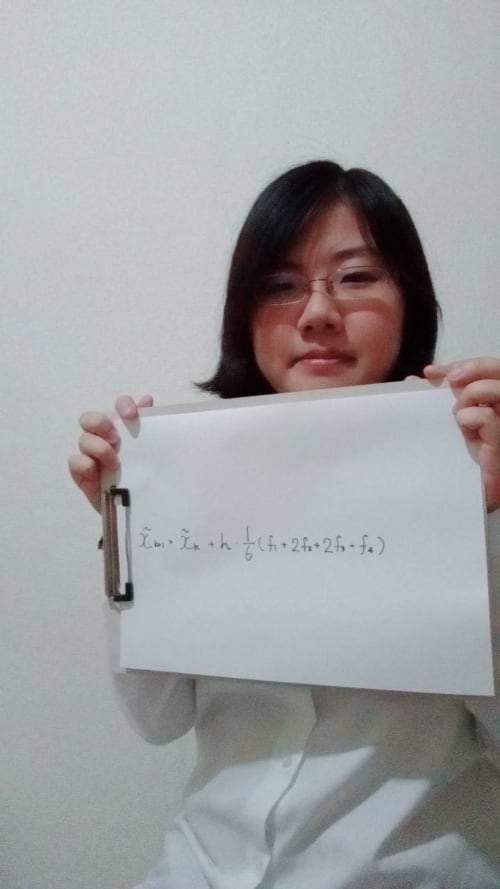 x̃ₖ₊₁ = x̃ₖ + h · 1/6 (f₁ + 2f₂ + 2f₃ + f₄)